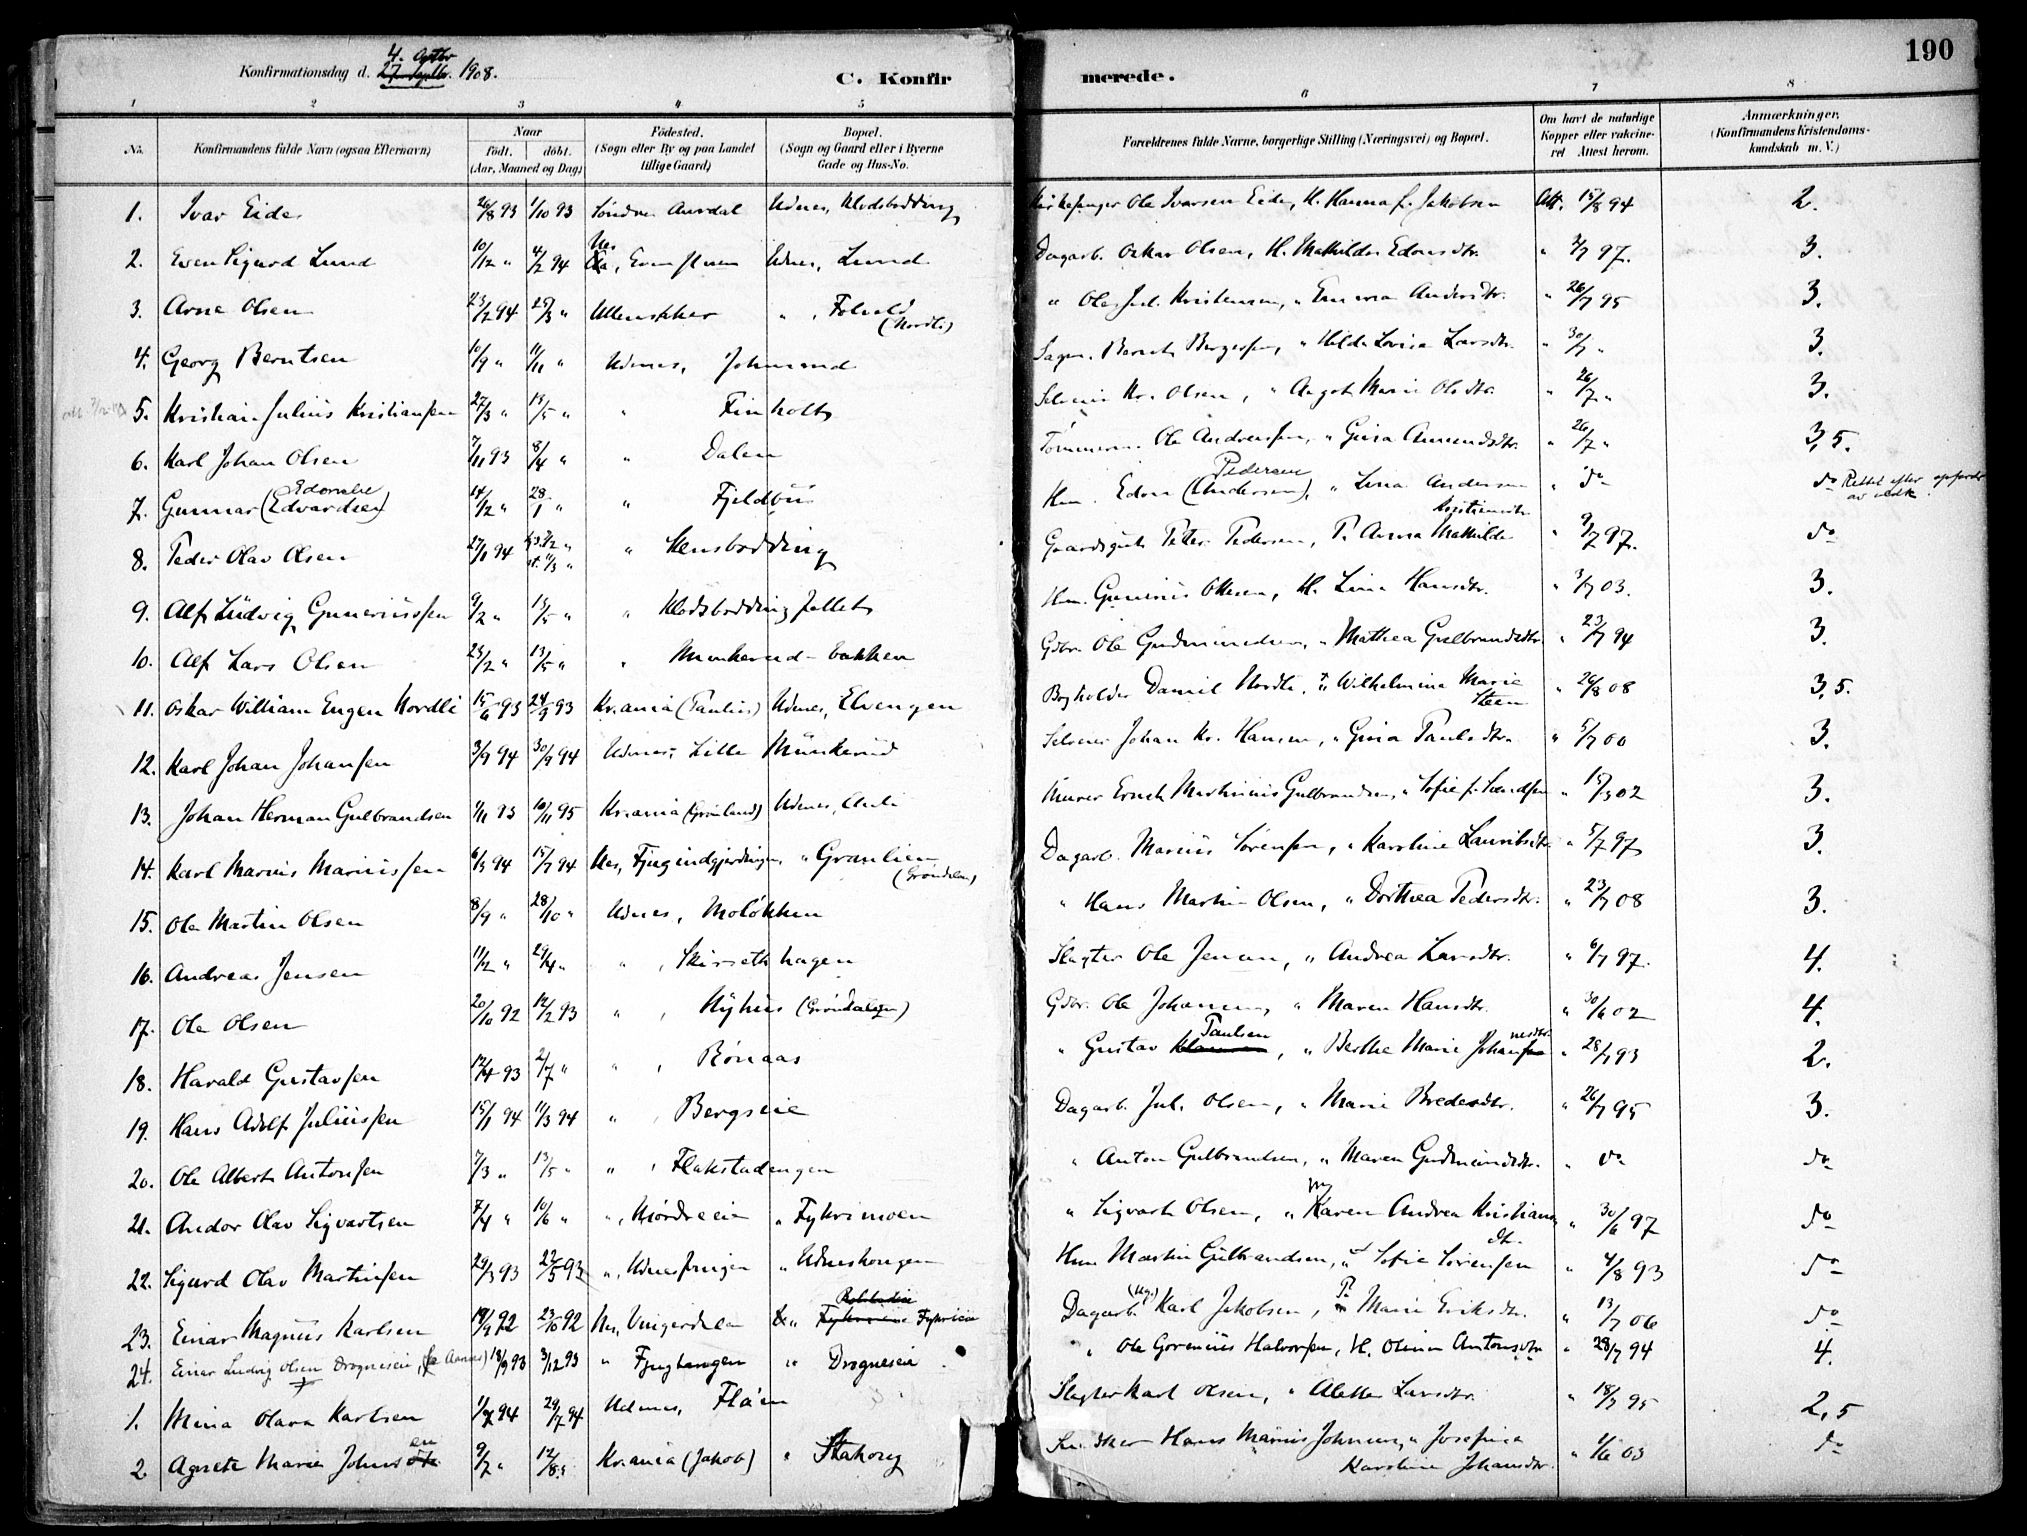 190
4. Octbr
Konfirmationsdag d. 27. Septbr. 1908.
C. Konfirmerede.
1 2 3 4 5 6 7 8
No. Konfirmandens fulde Navn (ogsaa Efternavn) Naar født. døbt. (Aar, Maaned og Dag) Fødested. (Sogn eller By og paa Landet tillige Gaard) Bopæl. (Sogn og Gaard eller i Byerne Gade og Hus-No. Forældrenes fulde Navne, borgerlige Stilling (Næringsvei) og Bopæl. Om havt de naturlige Kopper eller vakcineret Attest herom. Anmærkninger. (Konfirmandens Kristendomskundskab m. V.)
1. Ivar Eide 26/8 93 1/10 93 Søndre Aurdal Udnes, Klodsbødding Kirkesanger Ole Ivarsen Eide, H. Hanna f. Jakobsen Att. 15/8 94 2.
2. Even Sigurd Lund 10/12 " 4/2 94 Nes, Udnes, Lund Dagarb. Oskar Olsen, H. Mathilde Edvnsdtr. " 3/7 97. 3.
3. Arne Olsen 23/2 94 25/3 " Ullensaker " , (Nordli) " Ole Jul. Kristensen, " Emma Andersdtr. " 26/7 95 3.
4. Georg Berntsen 10/9 " 11/11 " Udnes, Johnsrud Bernt Bergersen, " Hilda Lovisa Larsdtr. " 30/7 " 3.
5. Kristian Julius Kristiansen 27/3 " 13/5 " " Finholt Selveier Kr. Olsen, " Angot Marie Olsdtr. " 26/7 " 3.
6. Karl Johan Olsen 7/11 93 8/4 " " Dalen Tømmerm. Ole Andreassen, " Gina Amundsdtr. " 26/7 " 3,5.
7. Gunnar (Edvardsen) 14/2 " 28/1 " " Fjeldbu Hm. Edvin (Andersen) Pedersen, " Lina Andersen " do do Rettet efter
8. Peder Olav Olsen 27/1 94 " Hensbødding Gaardsgut Peter Pedersen, P. Anna Mathilde Kristiansdtr. " 9/7 97. do
9. Alf Ludvig Guneriussen 9/2 " 13/5 " " Klodsbødding fallet Hm. Gunerius Olsen, H. Lina Hansdtr. " 3/7 03. 3.
10. Alf Lars Olsen 23/2 " 13/5 " " Munkerud-bakken Gdbr. Ole Gudmundsen, " Mathea Gulbrandsdtr. " 23/7 94 3.
11. Oskar William Eugen Nordli 15/6 93 24/9 93 Kr.ania (Paulus) Udnes, Elvengen Bogholder Daniel Nordli, " Wilhelmine Marie Steen " 26/8 08 3,5.
12. Karl Johan Johansen 3/9 94 30/9 94 Udnes, Lille Munkerud Selveier Johan Kr. Hansen, " Gina Paulsdtr. " 5/7 00 3.
13. Johan Herman Gulbrandsen 1/11 93 10/11 95 Kr.ania (Grønland) Udnes, Murer Ernst Martinius Gulbrandsen, " Sofie f. " 15/7 02 3.
14. Karl Marius Mariussen 6/3 94 15/7 94 Nes, " Granlien (Grøndalen) Dagarb. Marius Sørensen, " Karoline Lauritsdtr. " 5/7 97 3.
15. Ole Martin Olsen 8/9 " 28/10 " Udnes, Moløkken " Hans Martin Olsen, " Dorthea Pedersdtr. " 23/7 08 3.
16. Andreas Jensen 11/2 " 29/4 " " , Skirsethhagen Slagter Ole Jensen, " Andrea Larsdtr. " 6/7 97. 4.
17. Ole Olsen 20/10 92 12/2 93 " , Nyhus (Grøndalen) Gdbr. Ole Johansen, " Maren Hansdtr. " 30/6 02 4.
18. Harald Gustavsen 12/4 93 2/7 " " , Rønaas " Gustav Paulsen, " Berthe Marie Johannesdtr. " 28/7 93 2.
19. Hans Adolf Juliussen 15/1 94 11/3 94 " , Bergseie Dagarb. Jul. Olsen, " Marie Bredesdtr. " 26/7 95 3.
20. Ole Albert Antonsen 7/3 " 13/5 " " , Flakstadengen " Anton Gulbrandsen, " Maren Gudmundsdtr. " do do
21. Andor Olav Sigvartsen 7/4 " 10/6 " " , Mørdreeie " Fykrimoen " Sigvart Olsen, " Karen Andrea Kristiansdtr. " 30/6 97 do
22. Sigurd Olav Martinsen 29/3 93 22/5 93 " , " Udneshaugen Hm. Martin Gulbrandsen, " Sofie Sørensen " 4/8 93 do
23. Einar Magnus Karlsen 19/9 92 23/10 92 Nes, Dagarb. (Ug.) Karl Jakobsen, P. Marie Eriksdtr. " 13/7 06 do
24. Einar Ludvig Olsen Drogneseie, 18/9 93 3/12 93 " Drogneseie " Ole Gorenius Halvorsen, H. Olina Antonsdtr. " 28/7 94 4.
1. Mina Olava Karlsen 1/7 94 29/7 94 Udnes, Flaen Slagter Karl Olsen, " Alette Larsdtr. " 18/7 95 2,5
2. Agnete Marie Johnsen 9/7 " 12/8 " Kr.ania (Jakob) " Stakorg Snedker Hans Marius Johnsen, " Josefine Karoline Johansdtr. " 1/6 03 do